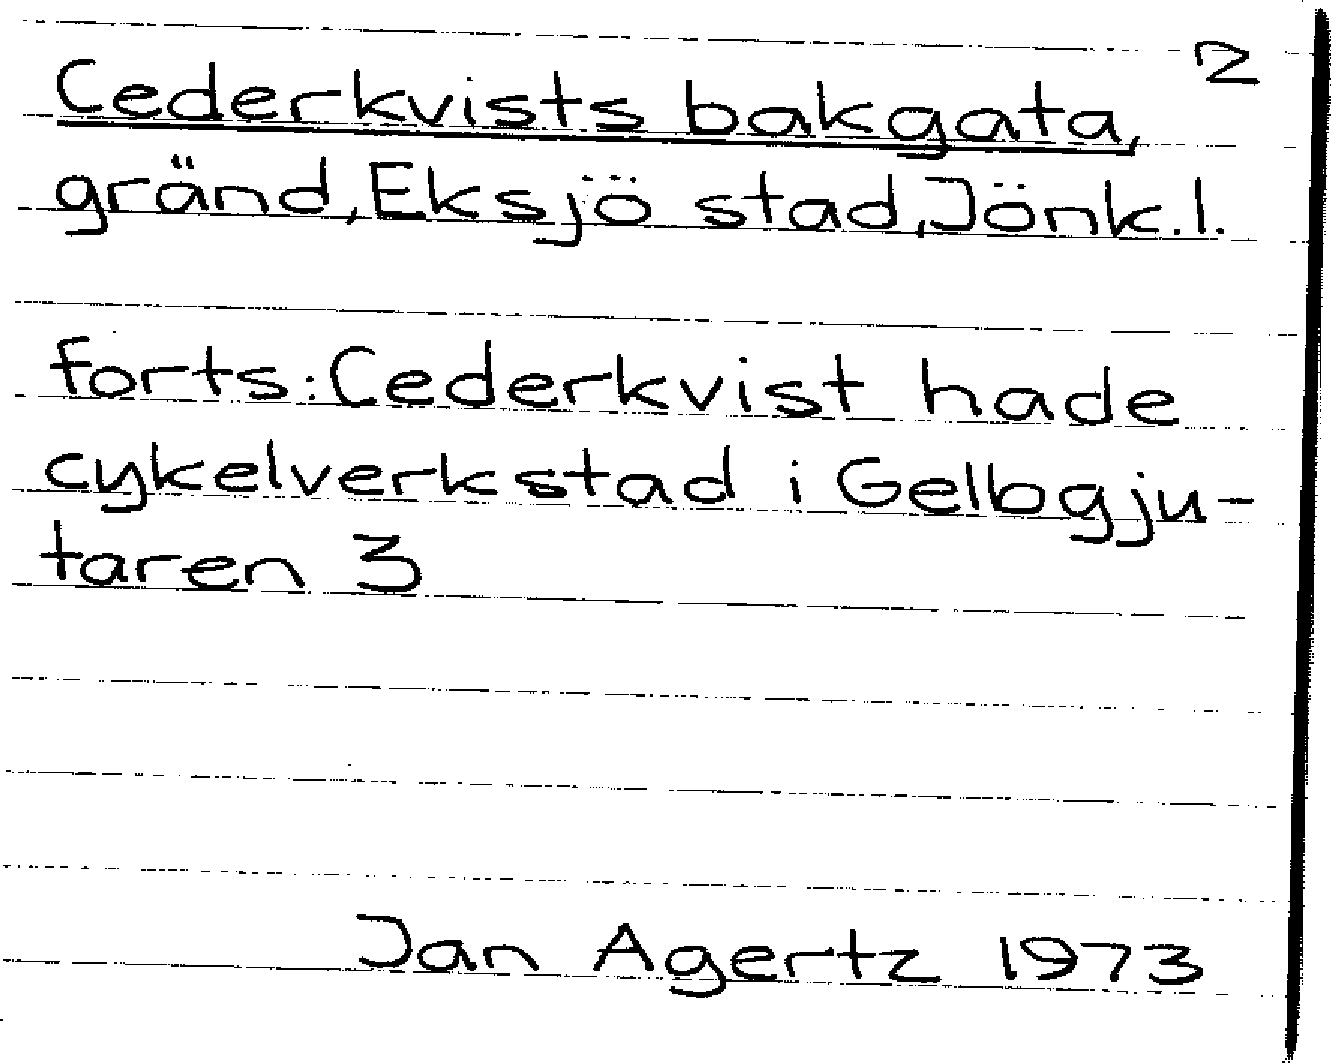 2
Cederkvists bakgata,
gränd, Eksjö stad, Jönk.l.
forts: Cederkvist hade
cykelverkstad i Gelbgju-
taren 3
Jan Agertz 1973